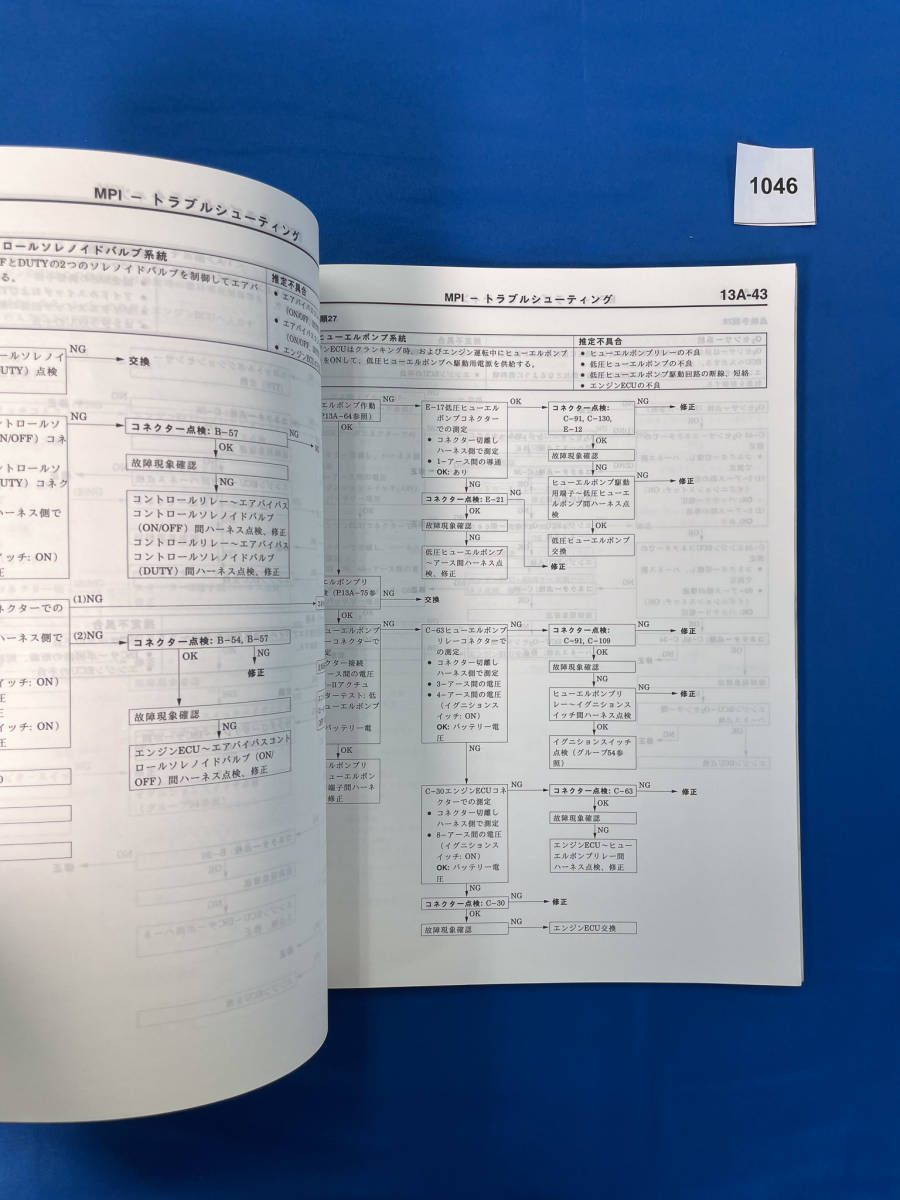 1046
MPI − トラブルシューティング
ロールソレノイドバルブ系統
FとDUTYの2つのソレノイドバルブを制御してエアバ
る。
推定不具合
● エアバイパスコ
(ON/OFF,
● エアバイパス
● エンジンE
ールソレノイ
UTY)点検
NG
交換
トロールソ
N/OFF)コネ
ントロールソ
UTY)コネク
ハーネス側で
イッチ: ON)
圧
NG
コネクター点検: B-57
NG
OK
故障現象確認
NG
コントロールリレー〜エアバイパス
コントロールソレノイドバルブ
(ON/OFF)間ハーネス点検、修正
コントロールリレー〜エアバイパス
コントロールソレノイドバルブ
(DUTY)間ハーネス点検、修正
ネクターでの
ハーネス側で
イッチ: ON)
圧
イッチ: ON)
圧
(1)NG
(2)NG
コネクター点検: B-54, B-57
OK
NG
修正
故障現象確認
NG
エンジンECU〜エアバイパスコント
ロールソレノイドバルブ(ON/
OFF)間ハーネス点検、修正
MPI − トラブルシューティング
13A-43
類27
ヒューエルポンプ系統
ンECUはクランキング時、およびエンジン運転中にヒューエルポンプ
をONして、低圧ヒューエルポンプへ駆動用電源を供給する。
推定不具合
● ヒューエルポンプリレーの不良
● 低圧ヒューエルポンプの不良
● 低圧ヒューエルポンプ駆動回路の断線、短絡
● エンジンECUの不良
エルポンプ作動
P13A−64参照)
NG
OK
E-17低圧ヒューエル
ポンプコネクター
での測定
● コネクター切離し
ハーネス側で測定
● 1−アース間の導通
OK: あり
OK
コネクター点検:
C-91, C-130,
E-12
NG
修正
OK
故障現象確認
NG
ヒューエルポンプ駆動
用端子〜低圧ヒューエ
ルポンプ間ハーネス点
検
NG
修正
OK
低圧ヒューエルポンプ
交換
NG
コネクター点検: E-21
NG
修正
OK
故障現象確認
NG
低圧ヒューエルポンプ
〜アース間ハーネス点
検、修正
エルポンプリ
(P13A−75参
NG
交換
OK
ューエルポンプ
ーコネクターで
定
クター接続
ース間の電圧
-IIアクチュ
ーターテスト: 低
ューエルポンプ
バッテリー電
NG
OK
ルポンプリ
ューエルポン
端子間ハーネ
修正
C-63ヒューエルポンプ
リレーコネクターで
の測定
● コネクター切離し
ハーネス側で測定
● 3−アース間の電圧
● 4−アース間の電圧
(イグニションス
イッチ: ON)
OK: バッテリー電
圧
OK
コネクター点検:
C-91, C-109
NG
修正
OK
故障現象確認
NG
ヒューエルポンプリ
レー〜イグニションス
イッチ間ハーネス点検
NG
修正
OK
イグニションスイッチ
点検(グループ54参
照)
NG
C-30エンジンECUコネ
クターでの測定
● コネクター切離し
ハーネス側で測定
● 8−アース間の電圧
(イグニションス
イッチ: ON)
OK: バッテリー電
圧
OK
コネクター点検: C-63
NG
修正
OK
故障現象確認
NG
エンジンECU〜ヒュー
エルポンプリレー間
ハーネス点検、修正
NG
コネクター点検: C-30
NG
修正
OK
故障現象確認
NG
エンジンECU交換